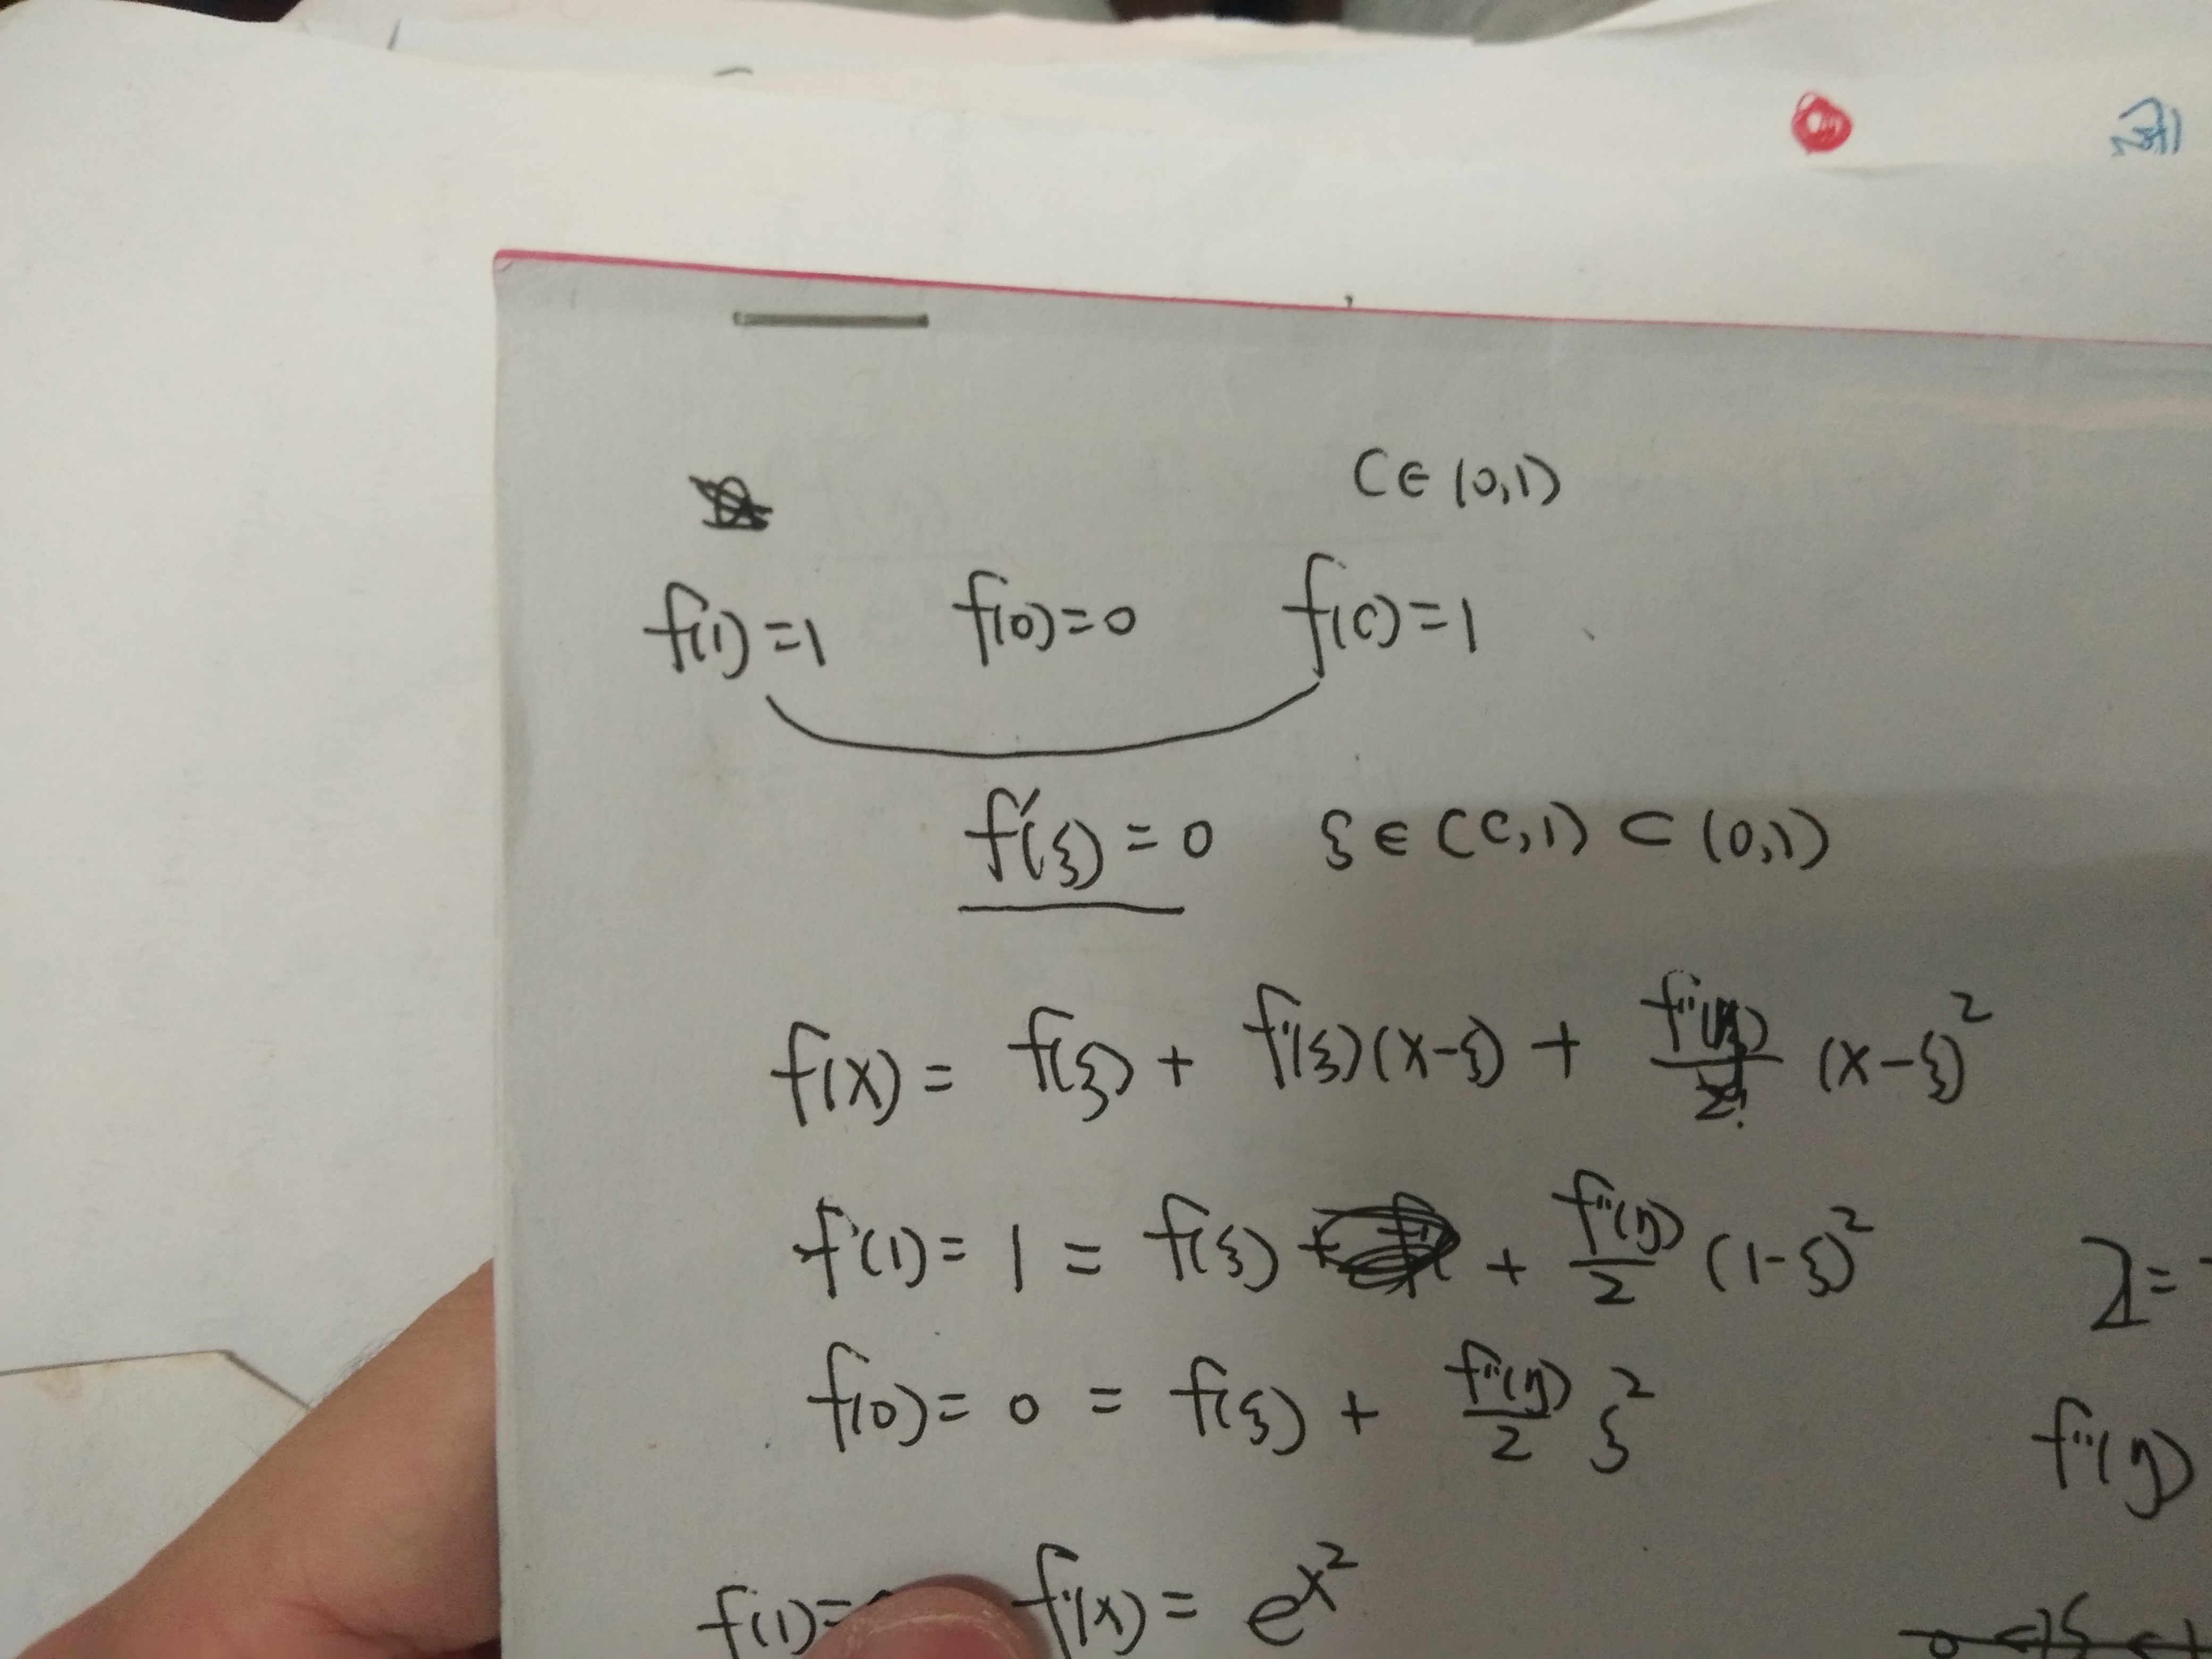 C∈(0,1)
f(1)=1 f(0)=0 f(c)=1
f'(ξ)=0 ξ∈(c,1)⊂(0,1)
f(x)= f(ξ)+ f'(ξ)(x-ξ)+ f''(η)/2! (x-ξ)²
f(1)= 1 = f(ξ) + f''(η)/2 (1-ξ)²
f(0)= 0 = f(ξ)+ f''(η)/2 ξ²
f''(η)
f(1)= f'(x)= e^x²